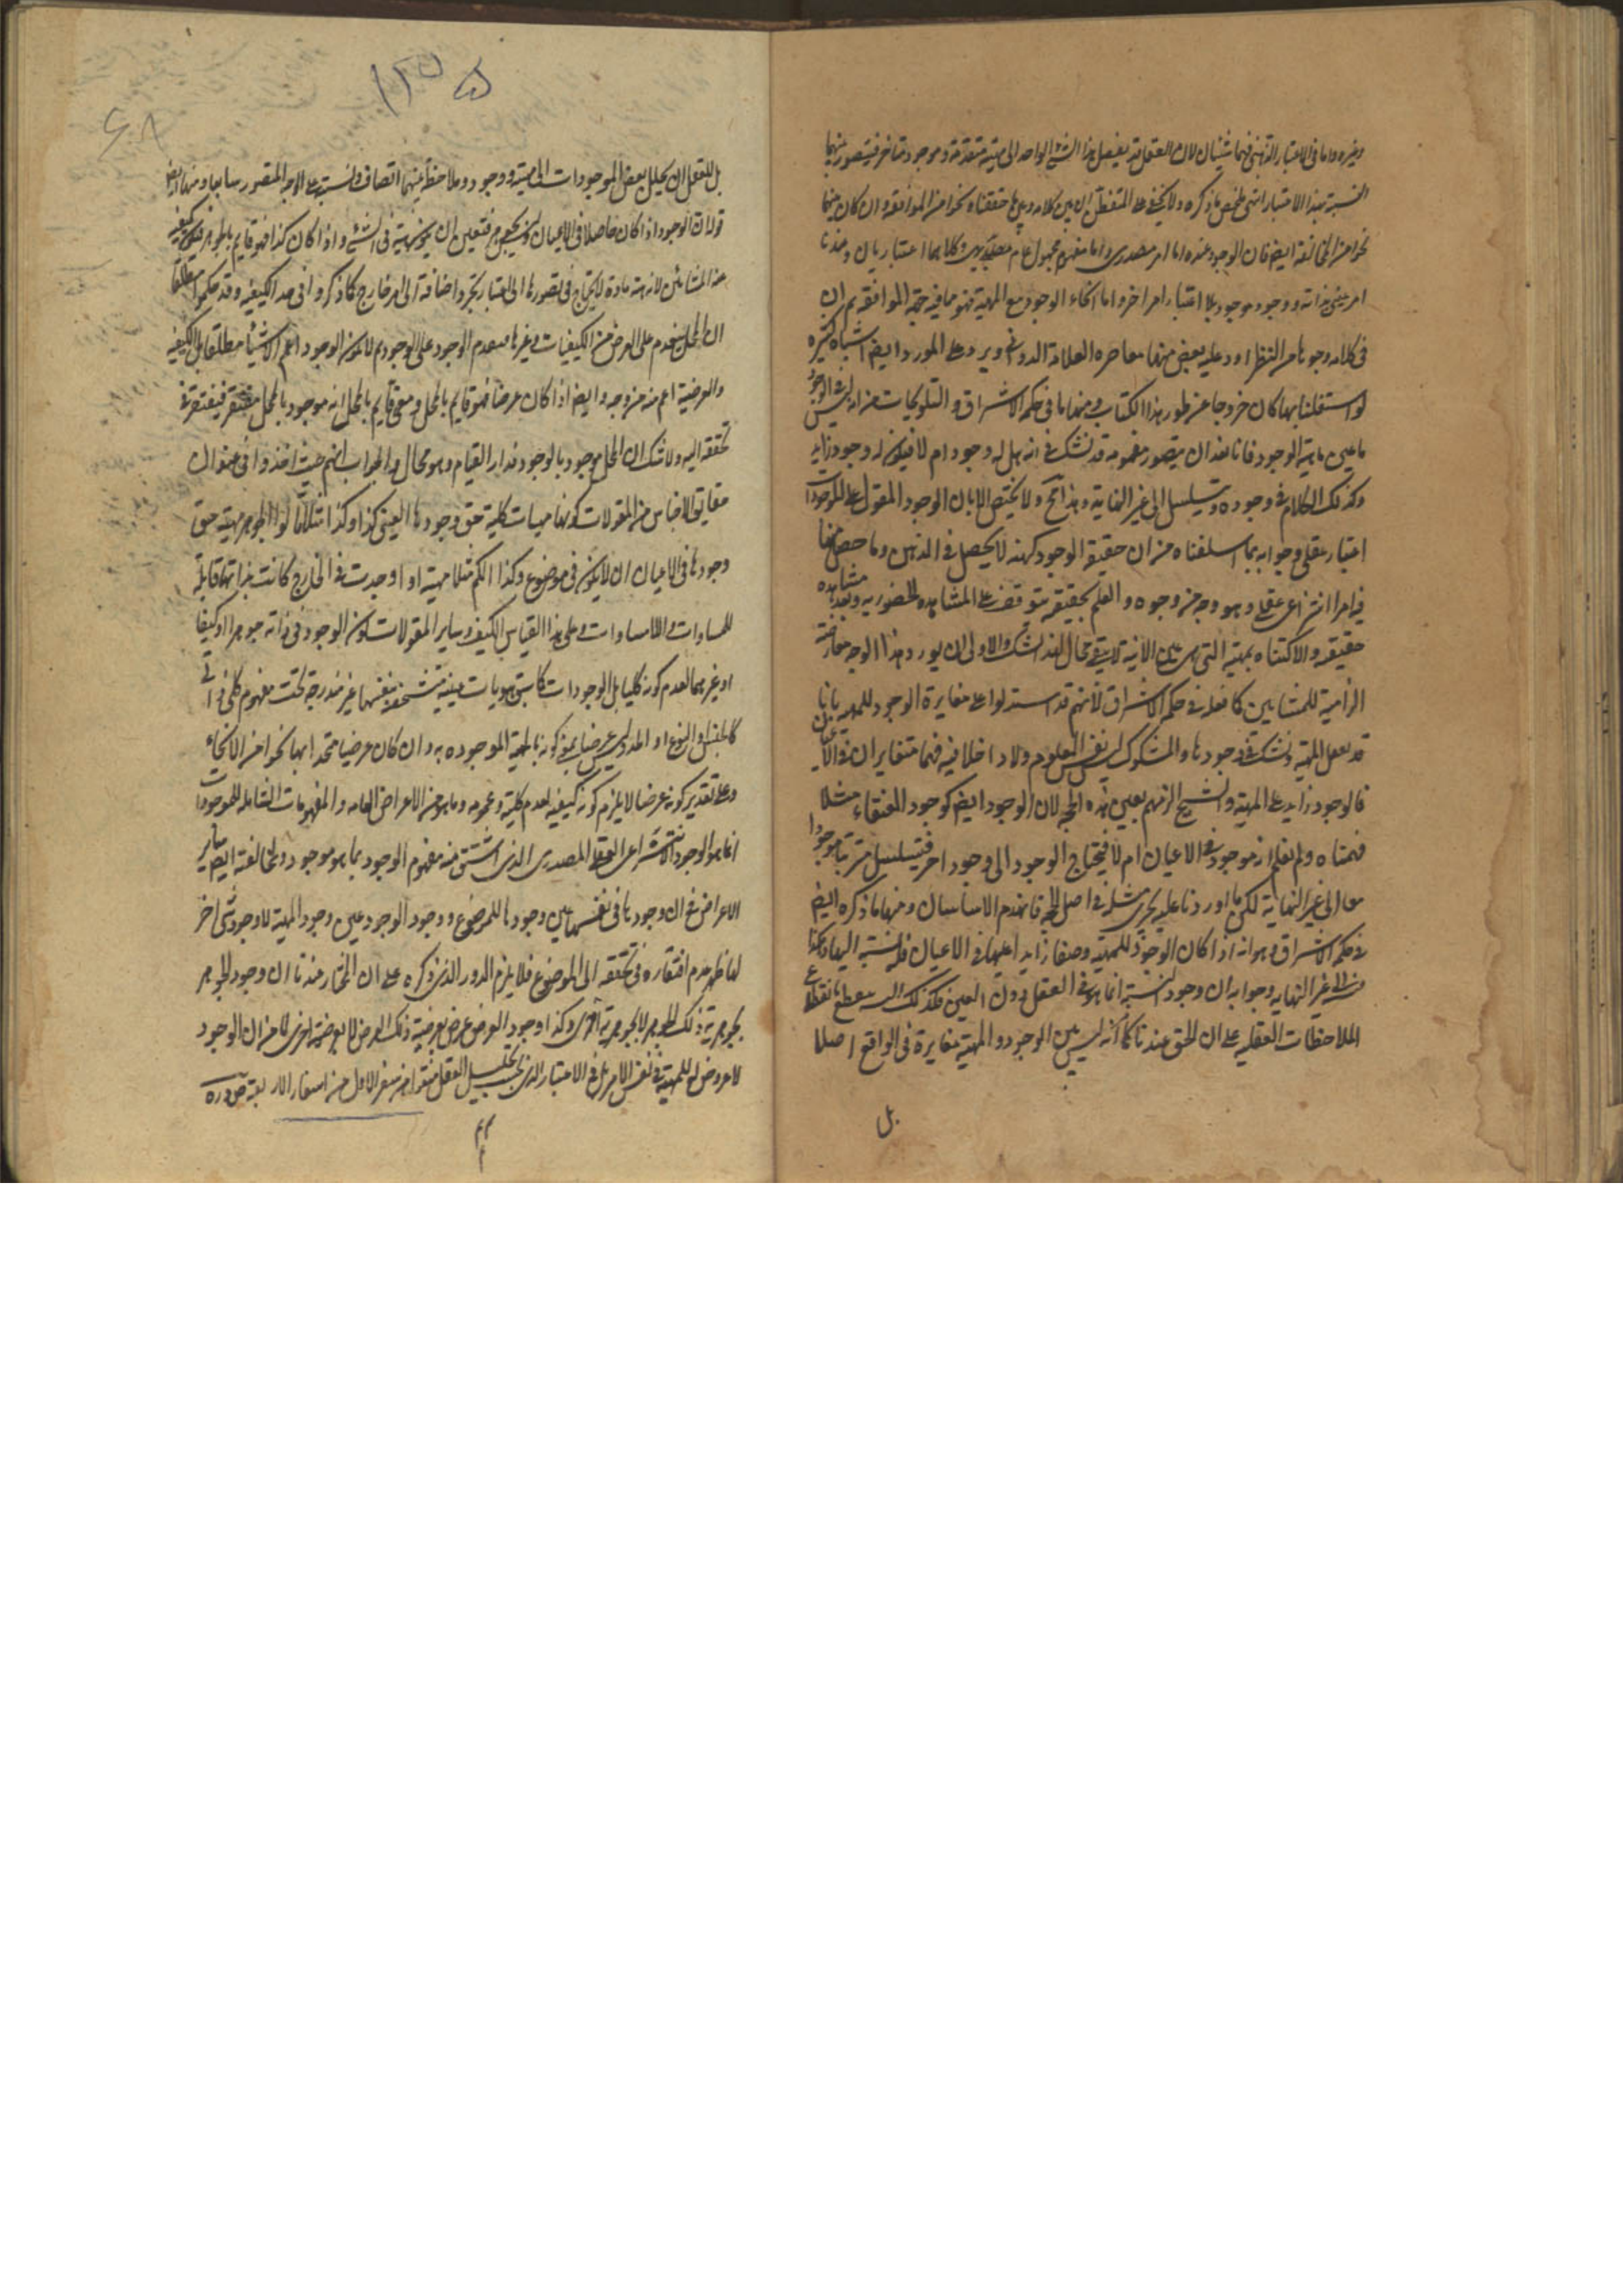 وغيره واما فى الاعتبار الذهنى فهما شيئان لان العقل قد يفصل هذا الشئ الواحد الى مهية متقدمة و موجود متاخر فيتصور بينهما
النسبة بهذا الاعتبار انتهى ملخص ما ذكره ولا يخفى على المتفطن ان بين كلامه وبين ما حققناه نحوا من الموافقة وان كان بينهما
نحوا من المخالفة ايضا فان الوجود عنده اما امر مصدرى واما مفهوم محمول عام وكلاهما اعتباريان وعندنا
امر عينى بذاته وجود وموجود بلا اعتبار امر اخر واما اتحاد الوجود مع المهية فهو مما فيه جهة الموافقة ثم ان
فى كلامه وجوها من النظر اورد عليه بعض منها معاصره العلامة الدوانى ويرد على المورد ايضا اشياء كثيرة
لو اشتغلنا بها لكان خروجا عن طور هذا الكتاب ومنها ما فى حكمة الاشراق والتلويحات من انه ليس فى الوجود
ما عين ماهيته الوجود فانا بعد ان يتصور مفهومه قد نشك فى انه هل له وجود ام لا فيكون له وجود زايد
وكذلك الكلام فى وجوده ويتسلسل الى غير النهاية وهذا مح ولا محيص الا بان الوجود المقول على الموجودات
اعتبار عقلى وجوابه بما اسلفناه من ان حقيقة الوجود كنهه لا يحصل فى الذهن وما حصل منها
فيه امر انتزاعى عقلى وهو وجه من وجوهه والعلم بحقيقته يتوقف على المشاهدة الحضورية وبعد مشاهدة
حقيقته والاكتناه بمهيته التى هى عين الانية لا يبقى مجال لهذا الشك والاولى ان يورد هذا الوجه معارضة
الزامية للمشايين كما فعله فى حكمة الاشراق لانهم قد استدلوا على مغايرة الوجود للمهية بانا
قد نعقل المهية ونشك فى وجودها والمشكوك ليس نفس المعلوم ولا داخلا فيه فهما متغايران فى الاعيان
فالوجود زايد على المهية والشيخ الزمهم بعين هذه الحجة لان الوجود ايضا كوجود العنقاء مثلا
فهمناه ولم نعلم انه موجود فى الاعيان ام لا فيحتاج الوجود الى وجود اخر فيتسلسل مترتبا موجودا
معا الى غير النهاية لكن ما اوردنا عليه يجرى مثله فى اصل الحجة فانهدم الاساسان ومنها ما ذكره ايضا
فى حكمة الاشراق وهو انه اذا كان الوجود للمهية وصفا زايدا عليها فى الاعيان فله نسبة اليها وهكذا
الى غير النهايه وجوابه ان وجود النسبة انما هو فى العقل دون العين فذلك التسلسل ينقطع بانقطاع
الملاحظات العقليه على ان الحق عندنا كما مر انه ليس بين الوجود و المهية مغايرة فى الواقع اصلا
بل
١٢٥٥
٤٨
بل للعقل ان يحلل بعض الموجودات الى مهية ووجود وملاحظ بينهما اتصاف ونسبة على الوجه المتصور سابقا ومنها ايضا
قوله ان الوجود اذا كان حاصلا فى الاعيان وليس بجوهر فتعين ان يكون هيئة فى الشئ واذا كان كذا فهو قايم بالجوهر فيكون كيفية
عند المشائين لانه هيئة قارة لا يحتاج فى تصورها الى اعتبار تجز واضافة الى امر خارج كما ذكروا فى حد الكيفيه وقد حكموا مطلقا
ان المحل يتقدم على العرض من الكيفيات وغيرها فيتقدم الموجود على الوجود ثم لا يكون الوجود اعم الاشيا مطلقا بل الكيفيه
والعرضية اعم منه من وجه وايضا اذا كان عرضا فهو قايم بالمحل ومعنى قايم بالمحل انه موجود بالمحل مفتقر فيفتقر فى
تحققه اليه ولا شك ان المحل موجود بالوجود فدار القيام وهو محال والجواب انهم حيث اخذوا فى عنوان
حقايق الاجناس من المقولات كونها مهيات كلية حق وجودها العينى كذا وكذا مثلا قالوا الجوهر مهية حق
وجودها فى الاعيان ان لا يكون فى موضوع وكذا الكم مثلا مهية اذا وجدت فى الخارج كانت بذاتها قابلة
للمساوات واللامساوات وعلى هذا القياس الكيف وساير المقولات فكون الوجود فى ذاته جوهرا او كيفا
او غيرهما لعدم كونه كليا بل الوجودات كما سبق هويات عينية متشخصة بنفسها غير مندرجة تحت مفهوم كلى ذاتى
كالجنس او النوع او الحد وليس عرضا بمعنى كونه قايما بالمهية الموجوده به وان كان عرضيا متحدا بها نحوا من الاتحاد
وعلى تقدير كونه عرضا لا يلزم كونه كيفية لعدم كليته وعمومه وما هو من الاعراض العامه والمفهومات الشامله للموجودات
انما هو الوجود الانتزاعى العقلى المصدرى الذى اشتق منه مفهوم الوجود بما هو موجود ولمخالفته ايضا ساير
الاعراض فى ان وجودها فى نفسها عين وجودها للموضوع ووجود الوجود عين وجود المهية لا وجود شئ اخر
لها ظهر عدم افتقاره فى تحققه الى الموضوع فلا يلزم الدور الذى ذكره على ان المختار عندنا ان وجود الجوهر
بجوهرية ذلك الجوهر لا بجوهرية اخرى وكذا وجود العرض عرض بعرضية ذلك العرض لا بعرضية اخرى لما مر ان الوجود
لا عروض له للمهية فى نفس الامر بل فى الاعتبار الذهنى بحسب تحليل العقل منقول من سفر الاول من اسفار الاربعة صدره